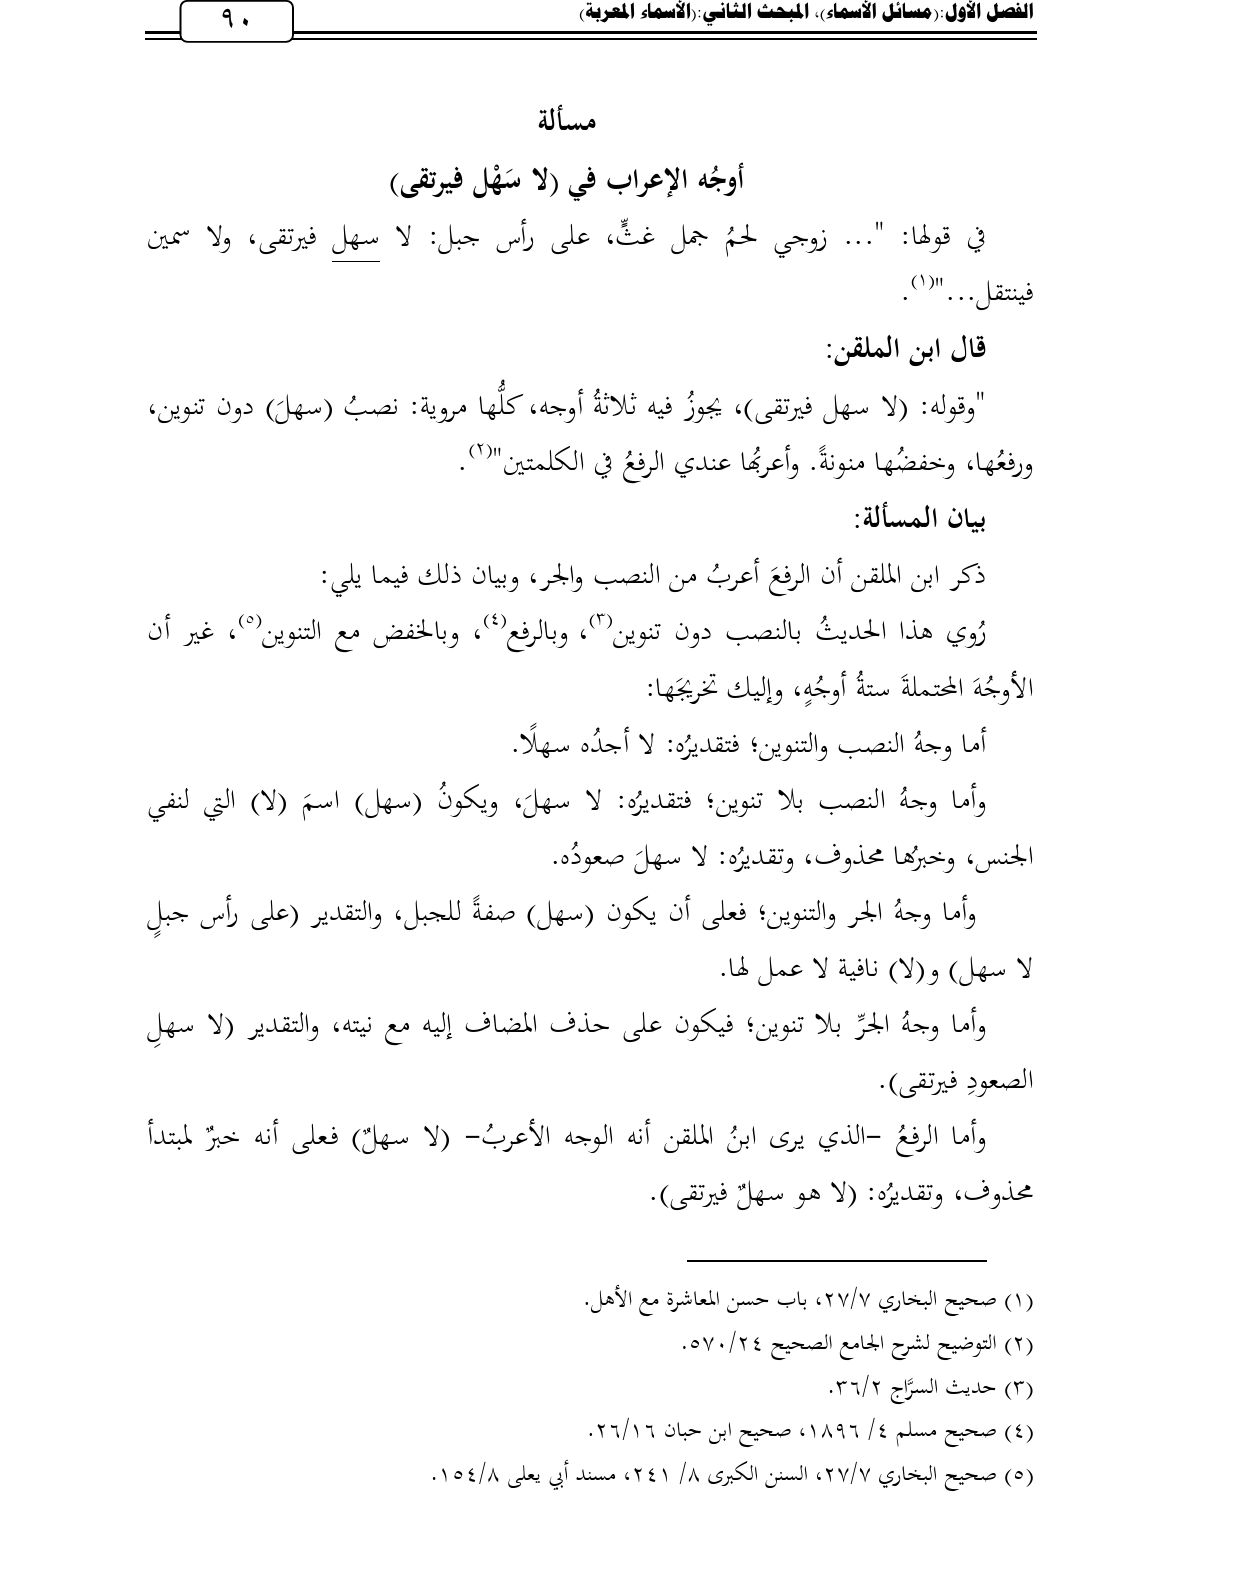 الفصل الأول:(مسائل الأسماء)، المبحث الثاني:(الأسماء المعربة)
٩٠
مسألة
أوجُه الإعراب في (لا سَهْل فيرتقى)
في قولها: "... زوجي لحمُ جمل غثٍّ، على رأس جبل: لا سهل فيرتقى، ولا سمين
فينتقل..."(١).
قال ابن الملقن:
"وقوله: (لا سهل فيرتقى)، يجوزُ فيه ثلاثةُ أوجه، كلُّها مروية: نصبُ (سهلَ) دون تنوين،
ورفعُها، وخفضُها منونةً. وأعربُها عندي الرفعُ في الكلمتين"(٢).
بيان المسألة:
ذكر ابن الملقن أن الرفعَ أعربُ من النصب والجر، وبيان ذلك فيما يلي:
رُوي هذا الحديثُ بالنصب دون تنوين(٣)، وبالرفع(٤)، وبالخفض مع التنوين(٥)، غير أن
الأوجُهَ المحتملةَ ستةُ أوجُهٍ، وإليك تخريجَها:
أما وجهُ النصب والتنوين؛ فتقديرُه: لا أجدُه سهلًا.
وأما وجهُ النصب بلا تنوين؛ فتقديرُه: لا سهلَ، ويكونُ (سهل) اسمَ (لا) التي لنفي
الجنس، وخبرُها محذوف، وتقديرُه: لا سهلَ صعودُه.
وأما وجهُ الجر والتنوين؛ فعلى أن يكون (سهل) صفةً للجبل، والتقدير (على رأس جبلٍ
لا سهل) و(لا) نافية لا عمل لها.
وأما وجهُ الجرِّ بلا تنوين؛ فيكون على حذف المضاف إليه مع نيته، والتقدير (لا سهلِ
الصعودِ فيرتقى).
وأما الرفعُ –الذي يرى ابنُ الملقن أنه الوجه الأعربُ– (لا سهلٌ) فعلى أنه خبرٌ لمبتدأ
محذوف، وتقديرُه: (لا هو سهلٌ فيرتقى).
(١) صحيح البخاري ٢٧/٧، باب حسن المعاشرة مع الأهل.
(٢) التوضيح لشرح الجامع الصحيح ٥٧٠/٢٤.
(٣) حديث السرَّاج ٣٦/٢.
(٤) صحيح مسلم ٤/ ١٨٩٦، صحيح ابن حبان ٢٦/١٦.
(٥) صحيح البخاري ٢٧/٧، السنن الكبرى ٨/ ٢٤١، مسند أبي يعلى ١٥٤/٨.